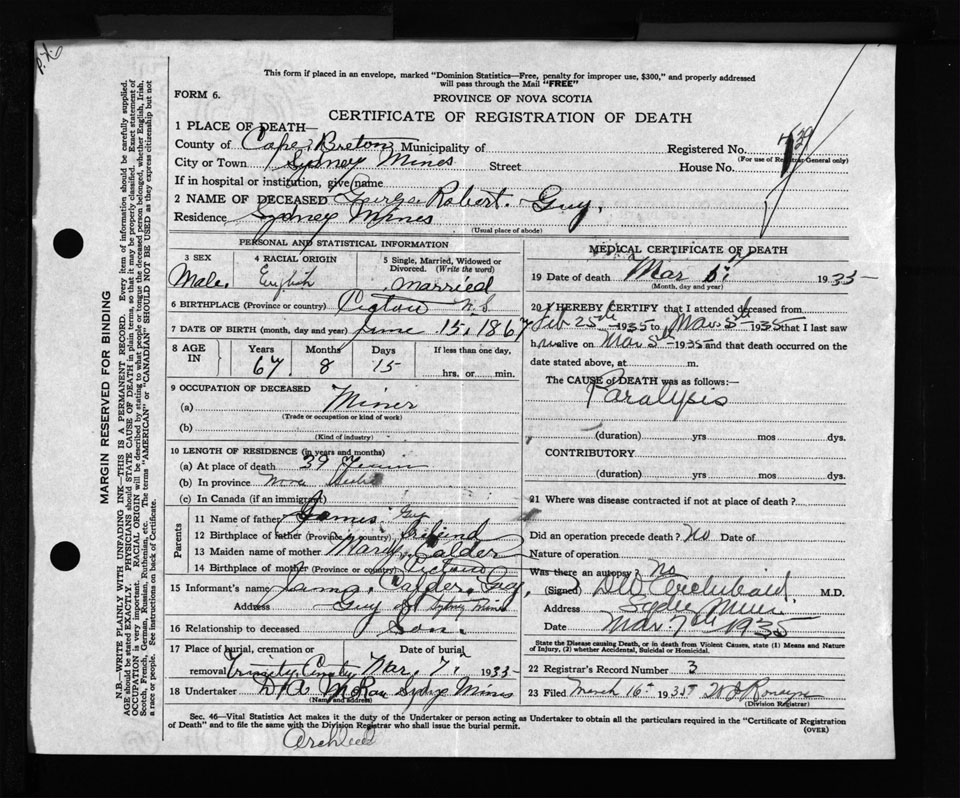 P.X.6
This form if placed in an envelope, marked "Dominion Statistics—Free, penalty for improper use, $300," and properly addressed
will pass through the Mail "FREE"
FORM 6.
PROVINCE OF NOVA SCOTIA
CERTIFICATE OF REGISTRATION OF DEATH
1 PLACE OF DEATH—
County of Cape Breton Municipality of Registered No.
(For use of Registrar General only)
City or Town Sydney Mines Street House No.
If in hospital or institution, give name
2 NAME OF DECEASED George Robert Guy.
Residence Sydney Mines
(Usual place of abode)
PERSONAL AND STATISTICAL INFORMATION
3 SEX 4 RACIAL ORIGIN 5 Single, Married, Widowed or
Divorced. (Write the word)
Male. English married
6 BIRTHPLACE (Province or country) Pictou N.S
7 DATE OF BIRTH (month, day and year) June 15, 1867
8 AGE IN Years Months Days If less than one day,
67 8 15 hrs. or min.
9 OCCUPATION OF DECEASED
(a) Miner
(Trade or occupation or kind of work)
(b)
(Kind of industry)
10 LENGTH OF RESIDENCE (in years and months)
(a) At place of death 39 Years
(b) In province Nova Scotia
(c) In Canada (if an immigrant)
Parents
11 Name of father James Guy
12 Birthplace of father (Province or country)
13 Maiden name of mother Mary Calder
14 Birthplace of mother (Province or country) Pictou
15 Informant's name James Calder Guy,
Address Guy St Sydney Mines
16 Relationship to deceased Son.
17 Place of burial, cremation or Date of burial
removal Trinity Mar 7, 1935
18 Undertaker McRae Sydney Mines
(Name and address)
MEDICAL CERTIFICATE OF DEATH
19 Date of death Mar 5, 1935
(Month, day and year)
20 I HEREBY CERTIFY that I attended deceased from
Feb 25th 1935 to Mar 5th 1935 that I last saw
him alive on Mar 5th 1935 and that death occurred on the
date stated above, at m.
The CAUSE of DEATH was as follows:—
Paralysis
(duration) yrs mos dys.
CONTRIBUTORY
(duration) yrs mos dys.
21 Where was disease contracted if not at place of death?
Did an operation precede death? no Date of
Nature of operation
Was there an autopsy? No
(Signed) D W Archibald M.D.
Address Sydney Mines
Date Mar 7th 1935
State the Disease causing Death, or in death from Violent Causes, state (1) Means and Nature
of Injury, (2) whether Accidental, Suicidal or Homicidal.
22 Registrar's Record Number 3
23 Filed March 16th 1935
(Division Registrar)
Sec. 46—Vital Statistics Act makes it the duty of the Undertaker or person acting as Undertaker to obtain all the particulars required in the "Certificate of Registration
of Death" and to file the same with the Division Registrar who shall issue the burial permit. (OVER)
MARGIN RESERVED FOR BINDING
N.B.—WRITE PLAINLY WITH UNFADING INK—THIS IS A PERMANENT RECORD. Every item of information should be carefully supplied.
AGE should be stated EXACTLY. PHYSICIANS should STATE CAUSE OF DEATH in plain terms, so that it may be properly classified. Exact statement of
OCCUPATION is very important. RACIAL ORIGIN will be described by stating to what people or tongue the deceased person belonged, whether English, Irish,
Scotch, French, German, Russian, Ruthenian, etc. The terms "AMERICAN" or "CANADIAN" SHOULD NOT BE USED as they express citizenship but not
a race or people. See instructions on back of Certificate.